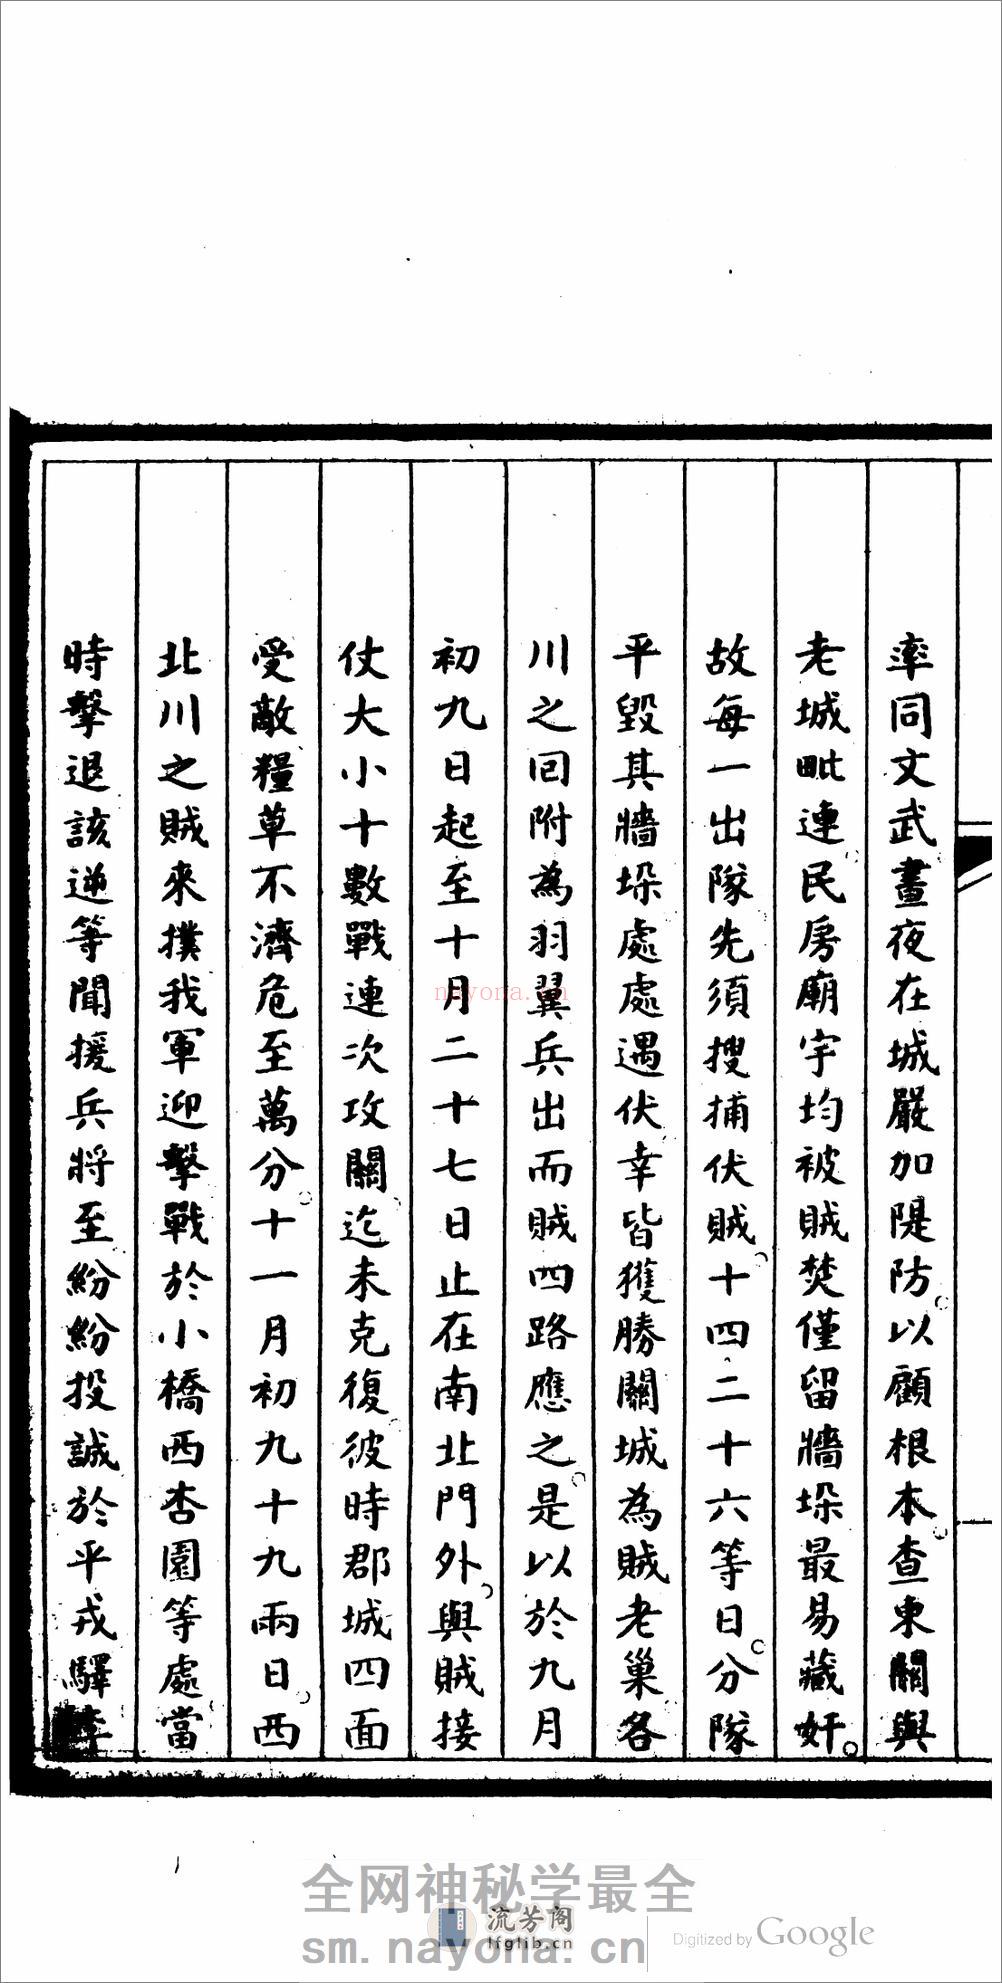 率同文武晝夜在城嚴加隄防以顧根本查東關與
老城毗連民房廟宇均被賊焚僅留牆垛最易藏奸
故每一出隊先須搜捕伏賊十四二十六等日分隊
平毀其牆垛處處遇伏幸皆獲勝關城為賊老巢各
川之回附為羽翼兵出而賊四路應之是以於九月
初九日起至十月二十七日止在南北門外與賊接
仗大小十數戰連次攻關迄未克復彼時郡城四面
受敵糧草不濟危至萬分十一月初九十九兩日西
北川之賊來撲我軍迎擊戰於小橋西杏園等處當
時擊退該逆等聞援兵將至紛紛投誠於平戎驛
nayona.cn
全网神秘学最全
流芳阁
lfglib.cn
sm.nayona.cn
Digitized by Google